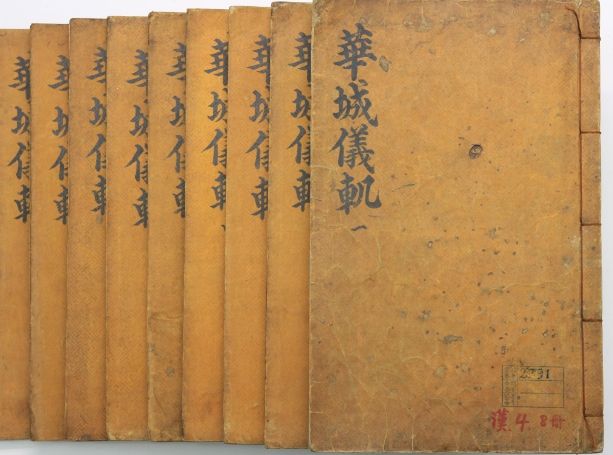 華城儀軌 一
漢 4. 8冊
華城儀軌
華城儀軌
華城儀軌
華城儀軌
華城儀軌
華城儀軌
華城儀軌
華城儀軌